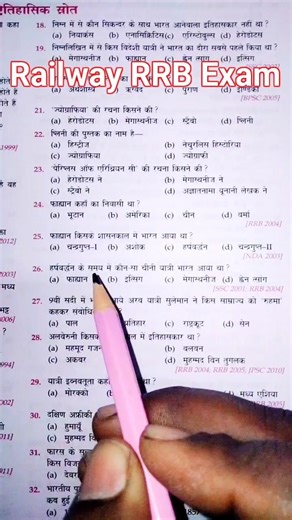 तिहासिक स्रोत
18. निम्न में से कौन सिकन्दर के साथ भारत आनेवाला इतिहासकार नहीं था ?
(a) नियार्कस (b) एनासिक्रिटिस (c) एरिस्टोबुलस (d) हेरोडोटस
19. निम्नलिखित में से किस विदेशी यात्री ने भारत का दौरा सबसे पहले किया था ?
(a) मेगास्थनीज (b) फाह्यान (c) ह्वेन त्सांग (d) इत्सिंग
Railway RRB Exam
(b) ऋग्वेद (c) पुराण
[BPSC 2005]
21. 'ज्योग्राफिया' की रचना किसने की ?
(a) हेरोडोटस (b) मेगास्थनीज (c) स्ट्रैबो (d) प्लिनी
22. प्लिनी की पुस्तक का नाम है—
(a) हिस्ट्रीज (b) नेचुरलिस हिस्टोरिया
(c) ज्योग्राफिया (d) ज्योग्राफी
23. 'पेरिप्लस ऑफ एरिथ्रियन सी' की रचना किसने की ?
(a) हेरोडोटस ने (b) मेगास्थनीज ने
(c) स्ट्रैबो ने (d) अज्ञातनामा यूनानी लेखक ने
24. फाह्यान कहाँ का निवासी था ?
(a) भूटान (b) अमेरिका (c) चीन (d) बर्मा
[RRB 2004]
25. फाह्यान किसके शासनकाल में भारत आया था ?
(a) चन्द्रगुप्त-I (b) अशोक (c) हर्षवर्द्धन (d) चन्द्रगुप्त-II
[NDA 2003]
26. हर्षवर्द्धन के समय में कौन-सा चीनी यात्री भारत आया था ?
(a) फाह्यान (b) इत्सिंग (c) मेगास्थनीज (d) ह्वेन त्सांग
[SSC 2001, RRB 2004]
27. 9वीं सदी में अरब यात्री सुलेमान ने किस साम्राज्य को 'रुहमा'
कहकर संबोधि
(a) पाल प्रतिहार (c) राष्ट्रकूट (d) सेन
28. अलबेरुनी किसके में इतिहासकार था ?
(a) महमूद गजन (b) बलबन
(c) अकबर (d) मुहम्मद बिन तुगलक
[RRB 2004, RRB 2005, JPSC 2010]
29. यात्री इब्नबतूता कहाँ
(a) मोरक्को मध्य एशिया
30. दक्षिण अफ्रीकी
(a) हुमायूँ
(c) मुहम्मद
31. फारस के
किस विज
(a) देवरा
32. भारतीय
कब हुई
(a)